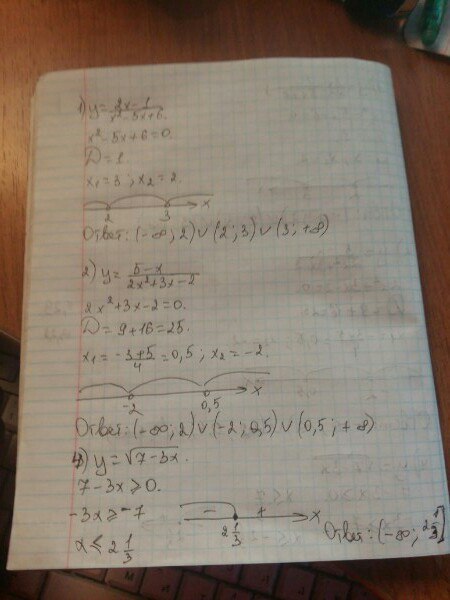 1) y = (2x-1)/(x²-5x+6)
x²-5x+6=0.
D=1.
x₁=3; x₂=2.
2 3 x
Ответ: (-∞; 2) ∪ (2; 3) ∪ (3; +∞)
2) y = (5-x)/(2x²+3x-2)
2x²+3x-2=0.
D=9+16=25.
x₁ = (-3+5)/4 = 0,5; x₂=-2.
-2 0,5 x
Ответ: (-∞; 2) ∪ (-2; 0,5) ∪ (0,5; +∞)
4) y=√(7-3x).
7-3x⩾0.
-3x⩾-7
x⩽2 1/3
- + 2 1/3 x
Ответ: (-∞; 2 1/3]